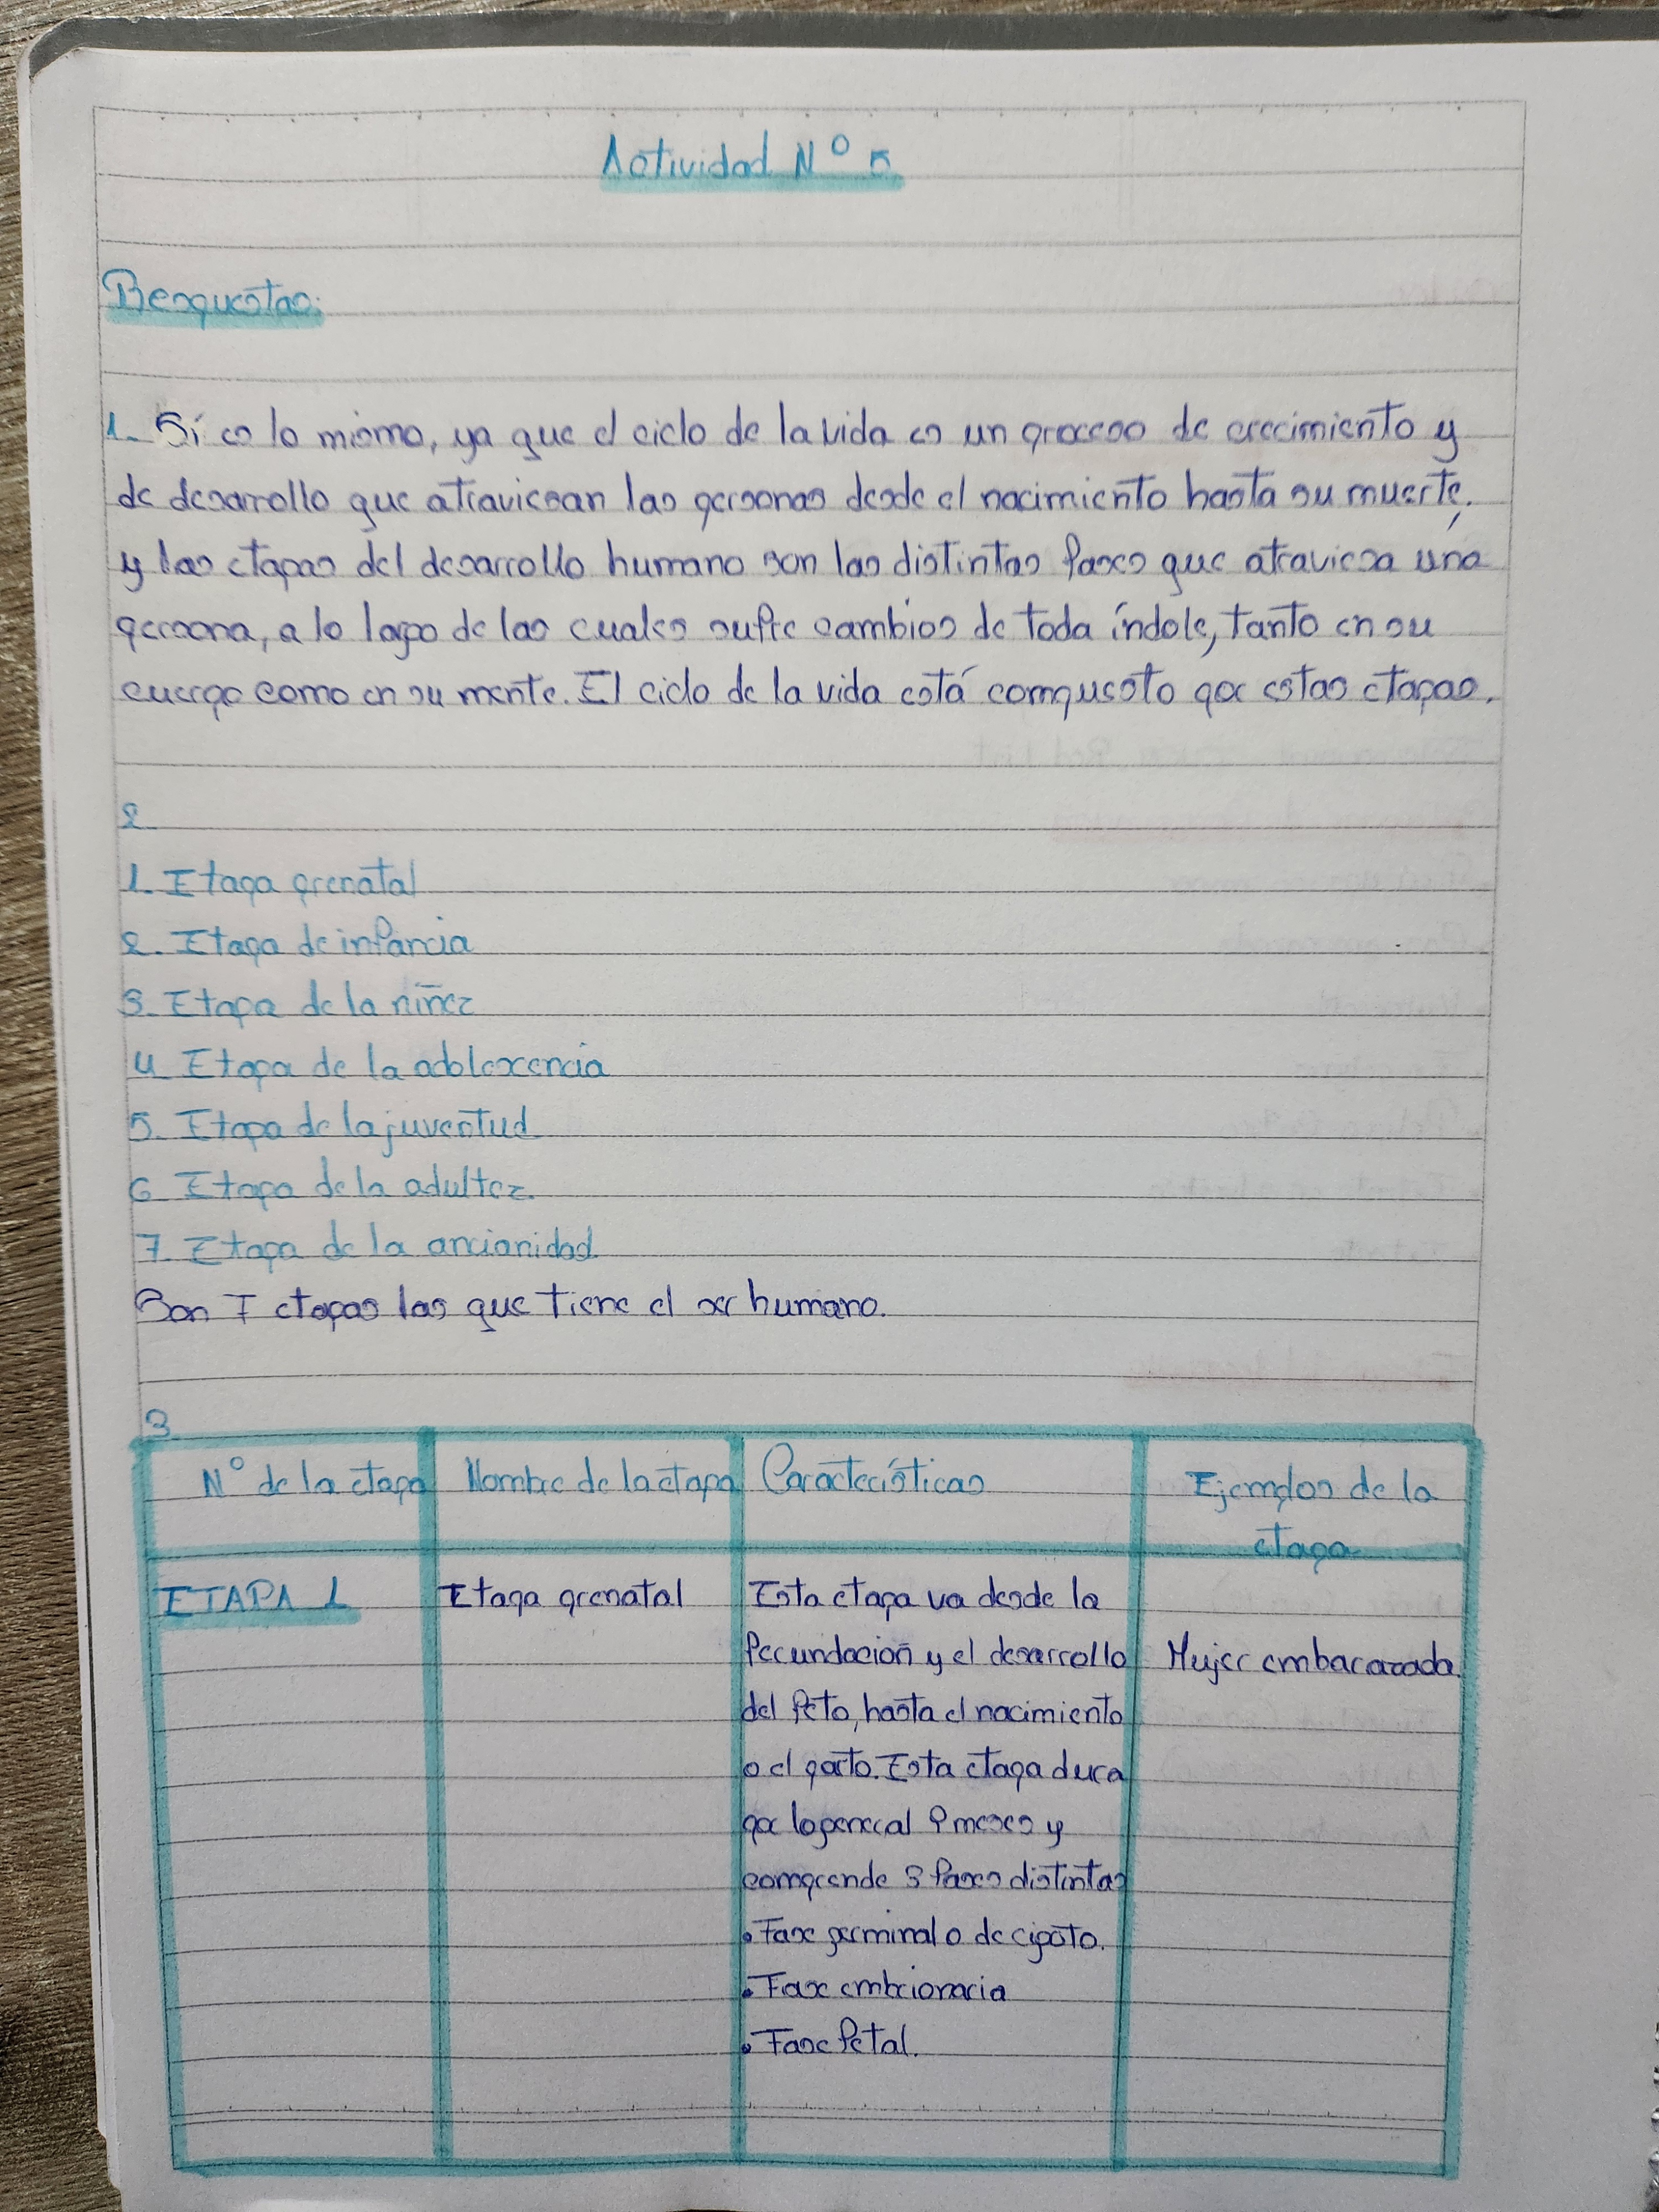 Actividad N° 5
Respuestas:
1. Sí es lo mismo, ya que el ciclo de la vida es un proceso de crecimiento y
de desarrollo que atraviesan las personas desde el nacimiento hasta su muerte,
y las etapas del desarrollo humano son las distintas fases que atraviesa una
persona, a lo largo de las cuales sufre cambios de toda índole, tanto en su
cuerpo como en su mente. El ciclo de la vida está compuesto por estas etapas.
2.
1. Etapa prenatal
2. Etapa de infancia
3. Etapa de la niñez
4. Etapa de la adolescencia
5. Etapa de la juventud
6. Etapa de la adultez.
7. Etapa de la ancianidad
Son 7 etapas las que tiene el ser humano.
3.
N° de la etapa Nombre de la etapa Características Ejemplos de la
etapa
ETAPA 1 Etapa prenatal Esta etapa va desde la
fecundación y el desarrollo Mujer embarazada.
del feto, hasta el nacimiento
o el parto. Esta etapa dura
por lo general 9 meses y
comprende 3 fases distintas
• Fase germinal o de cigoto.
• Fase embrionaria
• Fase fetal.